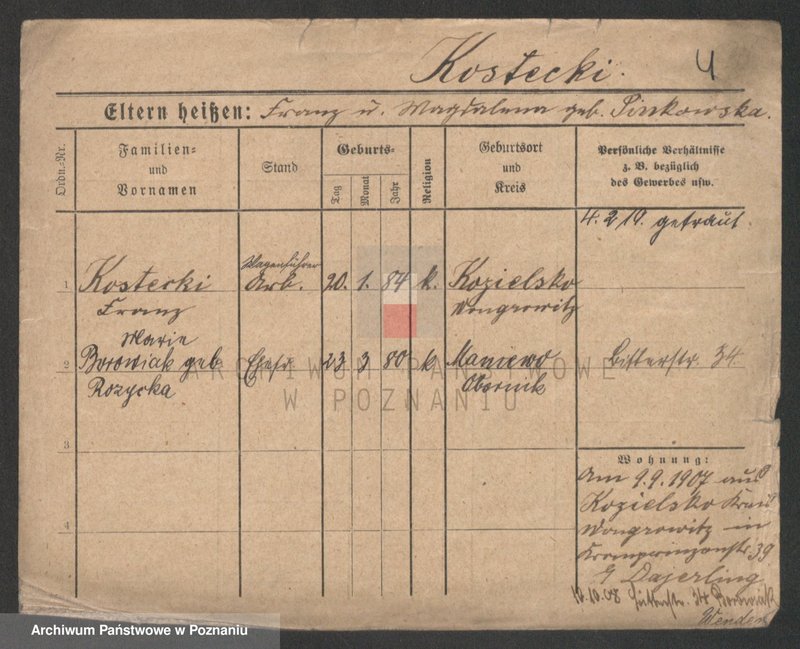 Kostecki.
4
Eltern heißen: Franz u. Magdalena geb. Pinkowska.
Ordn.-Nr.
Familien- und Vornamen
Stand
Geburts-
Tag
Monat
Jahr
Religion
Geburtsort und Kreis
Persönliche Verhältnisse
z. B. bezüglich
des Gewerbes usw.
4. 2 10. getraut.
1 Kostecki Wagenführer Arb. 20. 1. 84 k. Kozielsko
Franz Wongrowitz
Marie
2 Borowiak geb. Ehefr. 23 3 80 k Maniewo Bitterstr. 34
Rozycka Obornik
3
4
Wohnung:
Am 9.9.1907 aus
Kozielsko Kreis
Wongrowitz in
Kronprinzenstr 39
Dajerling
10.10.08 34 Borowiak
ARCHIWUM PAŃSTWOWE
W POZNANIU
Archiwum Państwowe w Poznaniu